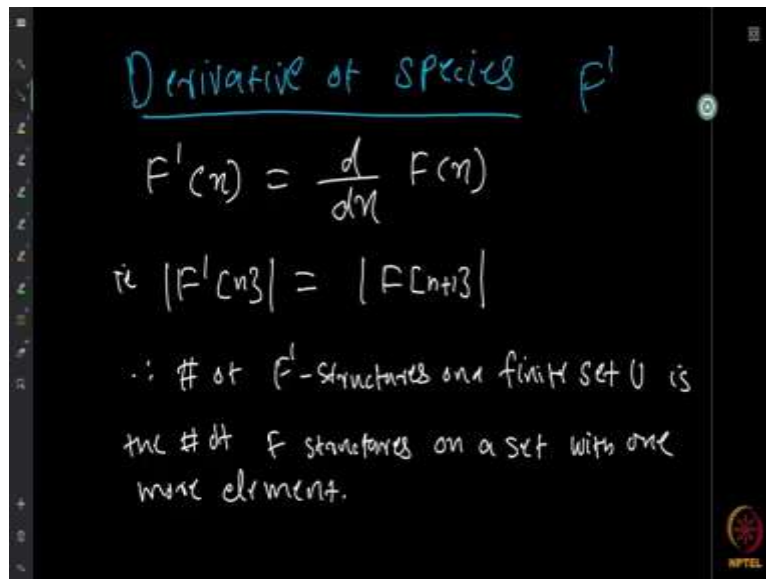 Derivative of species F'
F'(x) = d/dx F(x)
ie |F'[n]| = |F[n+1]|
∴ # of F'-structures on a finite set U is
the # of F structures on a set with one
more element.
NPTEL